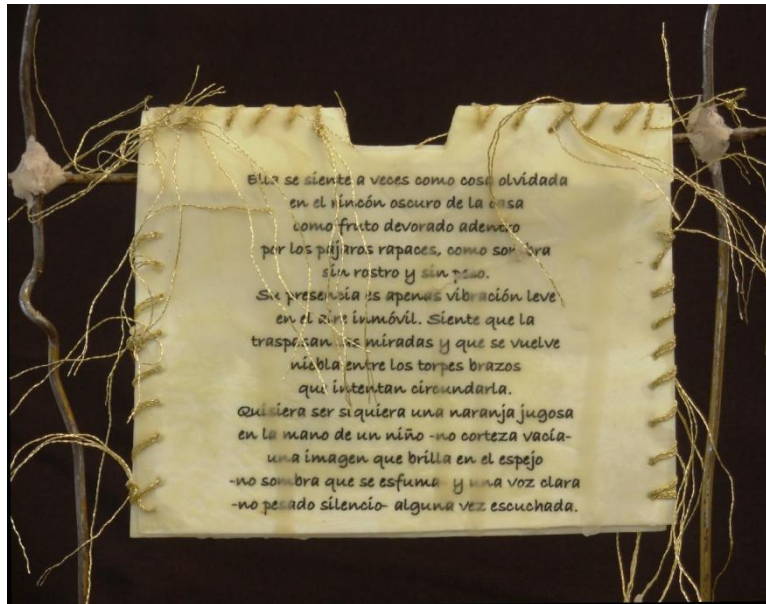 Ella se siente a veces como cosa olvidada
en el rincón oscuro de la casa
como fruto devorado adentro
por los pájaros rapaces, como sombra
sin rostro y sin peso.
Su presencia es apenas vibración leve
en el aire inmóvil. Siente que la
traspasan las miradas y que se vuelve
niebla entre los torpes brazos
que intentan circundarla.
Quisiera ser siquiera una naranja jugosa
en la mano de un niño -no corteza vacía-
una imagen que brilla en el espejo
-no sombra que se esfuma- y una voz clara
-no pesado silencio- alguna vez escuchada.